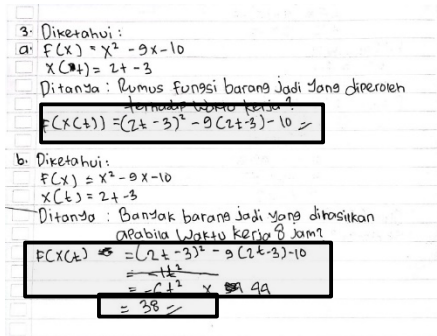 3. Diketahui :
a. F(x) = x² - 9x - 10
x(t) = 2t - 3
Ditanya : Rumus fungsi barang jadi yang diperoleh
terhadap waktu kerja?
F(x(t)) = (2t - 3)² - 9(2t - 3) - 10 =
b. Diketahui :
F(x) = x² - 9x - 10
x(t) = 2t - 3
Ditanya : Banyak barang jadi yang dihasilkan
apabila waktu kerja 8 Jam?
F(x(t) = (2t - 3)² - 9(2t - 3) - 10
= 38 =